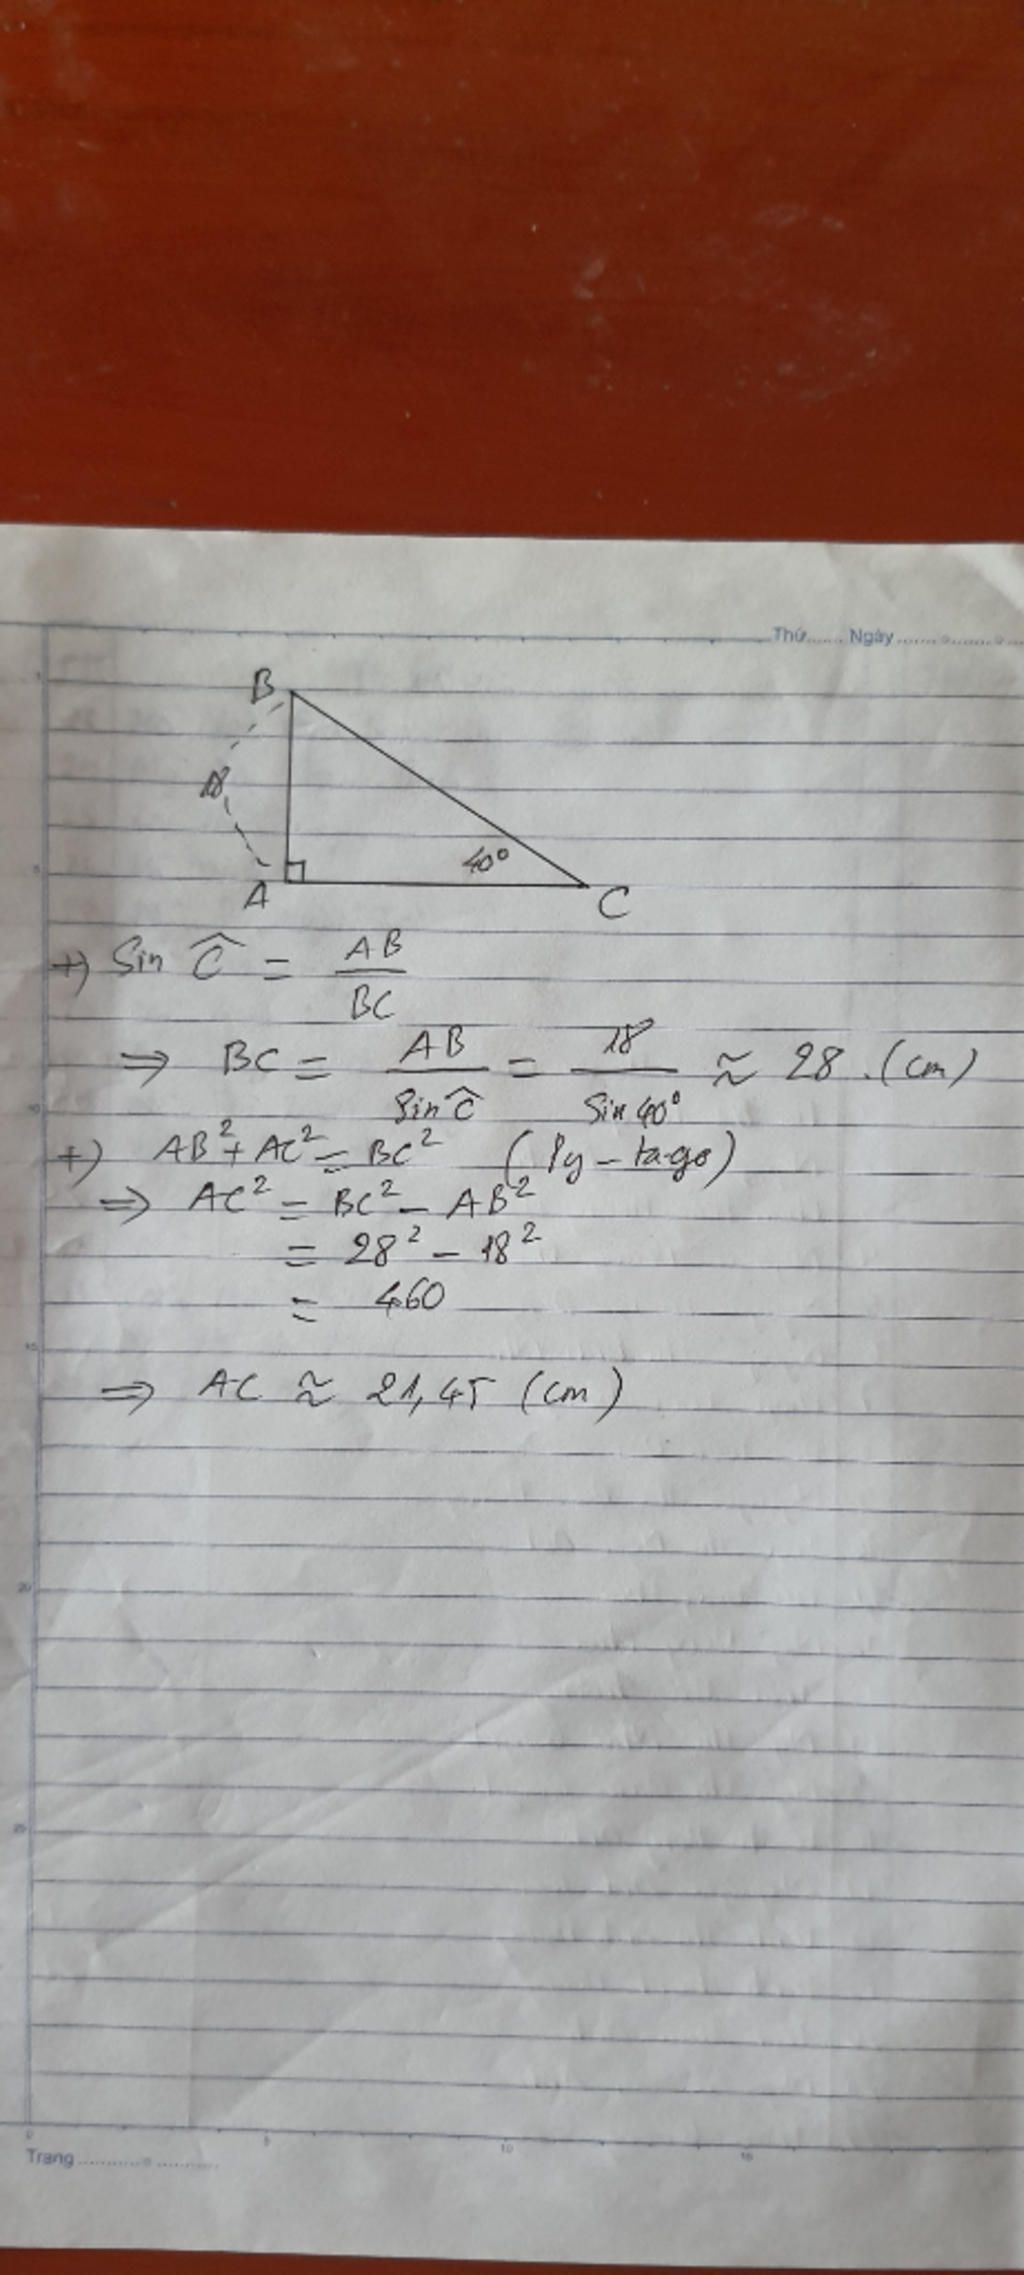 Thứ...... Ngày...............
B
18
40°
A
C
+) Sin Ĉ = AB / BC
=> BC = AB / Sin Ĉ = 18 / Sin 40° ≈ 28 .(cm)
+) AB² + AC² = BC² (Py-ta-go)
=> AC² = BC² - AB²
= 28² - 18²
= 460
=> AC ≈ 21,45 (cm)
Trang.......................